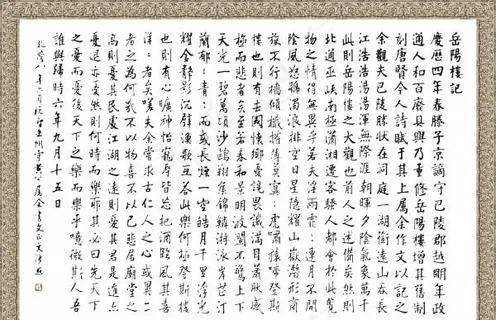 岳陽樓記
慶曆四年春滕子京謫守巴陵郡越明年政
通人和百廢具興乃重修岳陽樓增其舊制
刻唐賢今人詩賦于其上屬余作文以記之
余觀夫巴陵勝狀在洞庭一湖銜遠山吞長
江浩浩湯湯橫無際涯朝暉夕陰氣象萬千
此則岳陽樓之大觀也前人之述備矣然則
北通巫峽南極瀟湘遷客騷人都會於此覽
物之情得無異乎若夫淫雨霏〻連月不開
陰風怒號濁浪排空日星隱耀山嶽潛形商
旅不行檣傾楫摧薄暮冥〻虎嘯猿啼登斯
樓也則有去國懷鄉憂讒畏譏滿目蕭然感
極而悲者矣至若春和景明波瀾不驚上下
天光一碧萬頃沙鷗翔集錦鱗游泳岸芷汀
蘭郁〻青〻而或長煙一空皓月千里浮光
耀金靜影沉璧漁歌互答此樂何極登斯樓
也則有心曠神怡寵辱皆忘把酒臨風其喜
洋〻者矣嗟夫余嘗求古仁人之心或異二
者之為何哉不以物喜不以己悲居廟堂之
高則憂其民處江湖之遠則憂其君是進亦
憂退亦憂然則何時而樂耶其必曰先天下
之憂而憂後天下之樂而樂乎噫微斯人吾
誰與歸時六年九月十五日